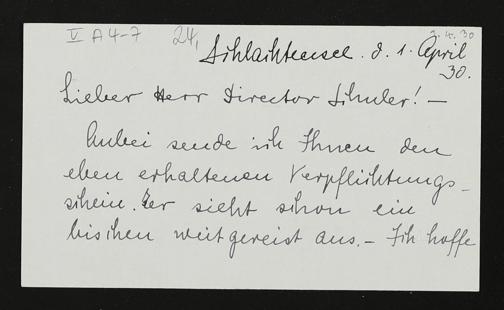 V A 4-7 24, 2.4.30
Schlachtensee. d. 1. April
30.
Lieber Herr Director Schuler! –
Anbei sende ich Ihnen den
eben erhaltenen Verpflichtungs-
schein. Er sieht schon ein
bischen weitgereist aus. – Ich hoffe